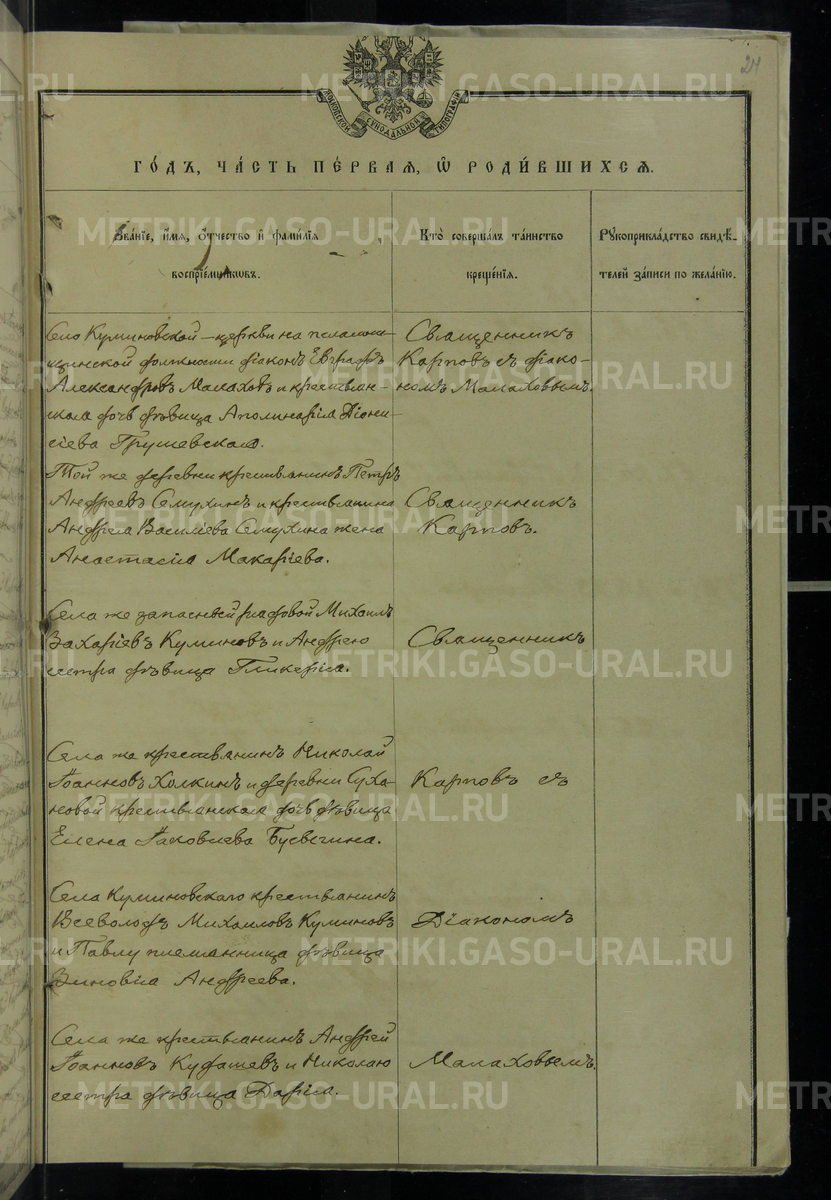 24
МОСКОВСКОЙ СѴНОДАЛЬНОЙ ТИПОГРАФІИ
ГО́ДЪ, ЧА́СТЬ ПЕ́РВАѦ, Ѡ҆ РОДИ́ВШИХСѦ.
Зва́нїе, и҆́мѧ, ѻ҆́тчество и҆ фами́лїѧ
воспрїе́мниковъ.
Кто̀ соверша́лъ та́инство
креще́нїѧ.
Рꙋкоприкла́дство свидѣ́-
телей за́писи по жела́нїю.
Село Куминовской церкви на псаломщи-
цинской должности діаконъ Евграфъ
Александровъ Малаховъ и крестьян-
ская дочь дѣвица Аполинарія Діони-
сіева Грушевская.
Священникъ
Карповъ съ діако-
номъ Малаховымъ.
Той же деревни крестьянинъ Петръ
Андреевъ Семухинъ и крестьянина
Андрея Василіева Семухина жена
Анастасія Макаріева.
Священникъ
Карповъ.
Села же запасный рядовой Михаилъ
Захаріевъ Куминовъ и Андрею
сестра дѣвица Гликерія.
Священникъ
Села же крестьянинъ Николай
Іоанновъ Холкинъ и деревни Суха-
новой крестьянская дочь дѣвица
Елена Іаковлева Бусыгина.
Карповъ съ
Села Куминовскаго крестьянинъ
Всеволодъ Михаиловъ Куминовъ
и Павлу племянница дѣвица
Зиновія Андреева.
Діакономъ
Села же крестьянинъ Андрей
Іоанновъ Кудашевъ и Николаю
сестра дѣвица Дарія.
Малаховымъ.
METRIKI.GASO-URAL.RU